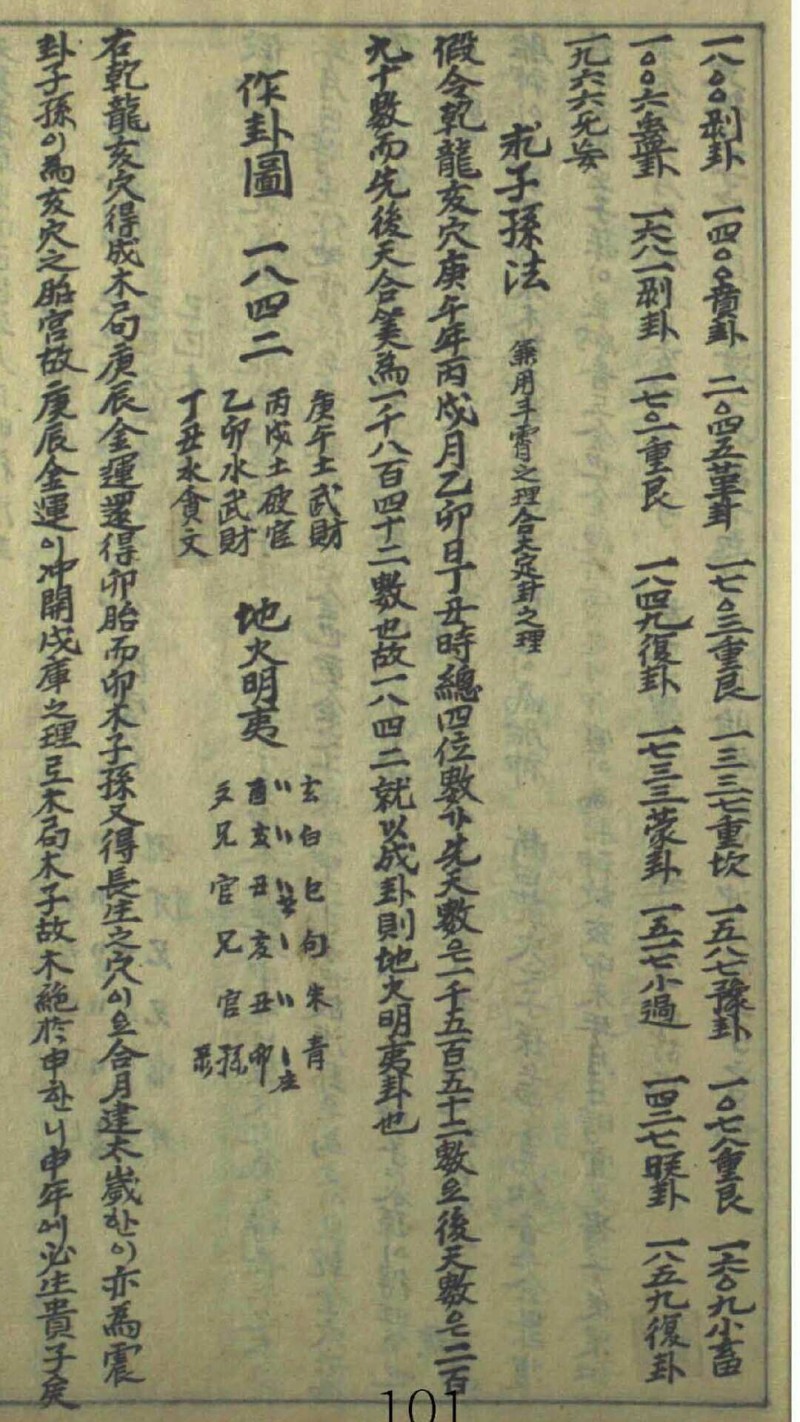 一八○○剥卦 一四○○賁卦 二○四五革卦 一七○三重艮 一三三七重坎 一五八七豫卦 一○七八重艮 一六○九小畜
一○○六蠱卦 一六八一剥卦 一七○一重艮 一八四九復卦 一七三三蒙卦 一五一七小過 一四二七睽卦 一八五九復卦
一九六六无妄
求子孫法 兼用手霄之理合天定卦之理
假令乾龍亥穴庚午年丙戌月乙卯日丁丑時總四位數가先天數은一千五百五十二數요後天數은二百
九十數而先後天合筭爲一千八百四十二數也故一八四二就以成卦則地火明夷卦也
作卦圖 一八四二
庚午土武財
丙戌土破官
乙卯水武財
丁丑水貪文
地火明夷
玄白巳句朱青
酉亥丑亥丑卯
文兄官兄官孫
右乾龍亥穴得成木局庚辰金運還得卯胎而卯木子孫又得長生之穴이요合月建太歲한이亦爲震
卦子孫이爲亥穴之胎宮故庚辰金運이冲開戌庫之理로木局木子故木絶於申한니申年에必生貴子矣
101